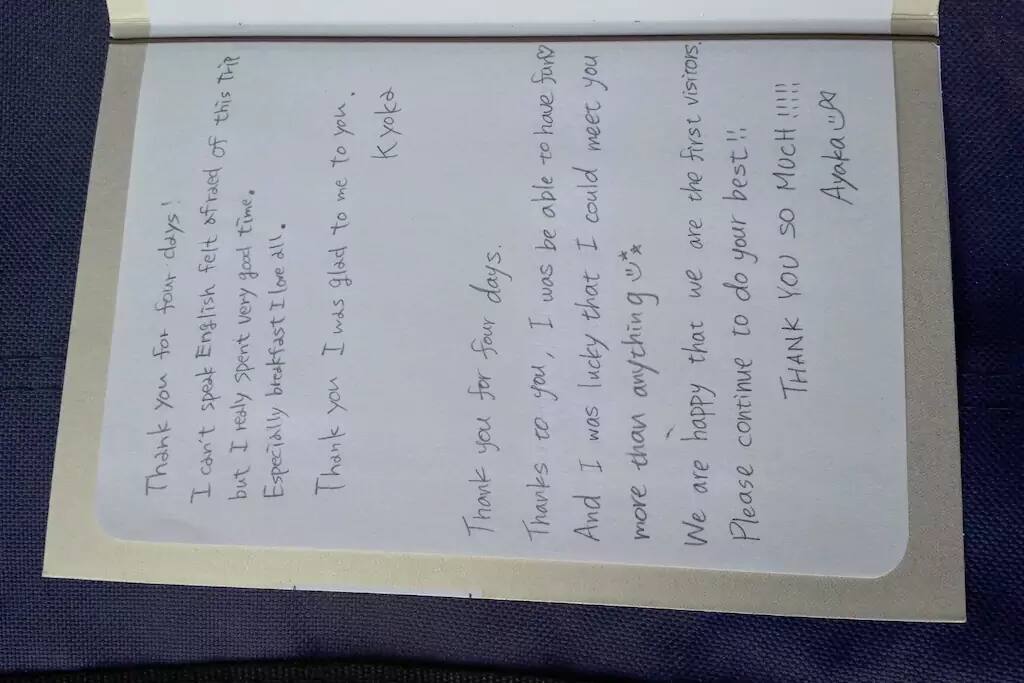 Thank you for four days!
I can't speak English felt afraed of this trip
but I realy spent very good time.
Especially breakfast I love all.
Thank you I was glad to me to you.
Kyoka
Thank you for four days.
Thanks to you, I was be able to have fun♡
And I was lucky that I could meet you
more than anything
We are happy that we are the first visitors.
Please continue to do your best!!
THANK YOU SO MUCH!!!!!
Ayaka